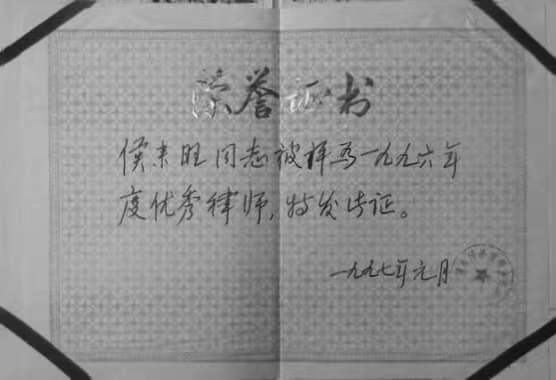 荣誉证书
侯来旺同志被评为一九九六年
度优秀律师,特发此证。
一九九七年元月